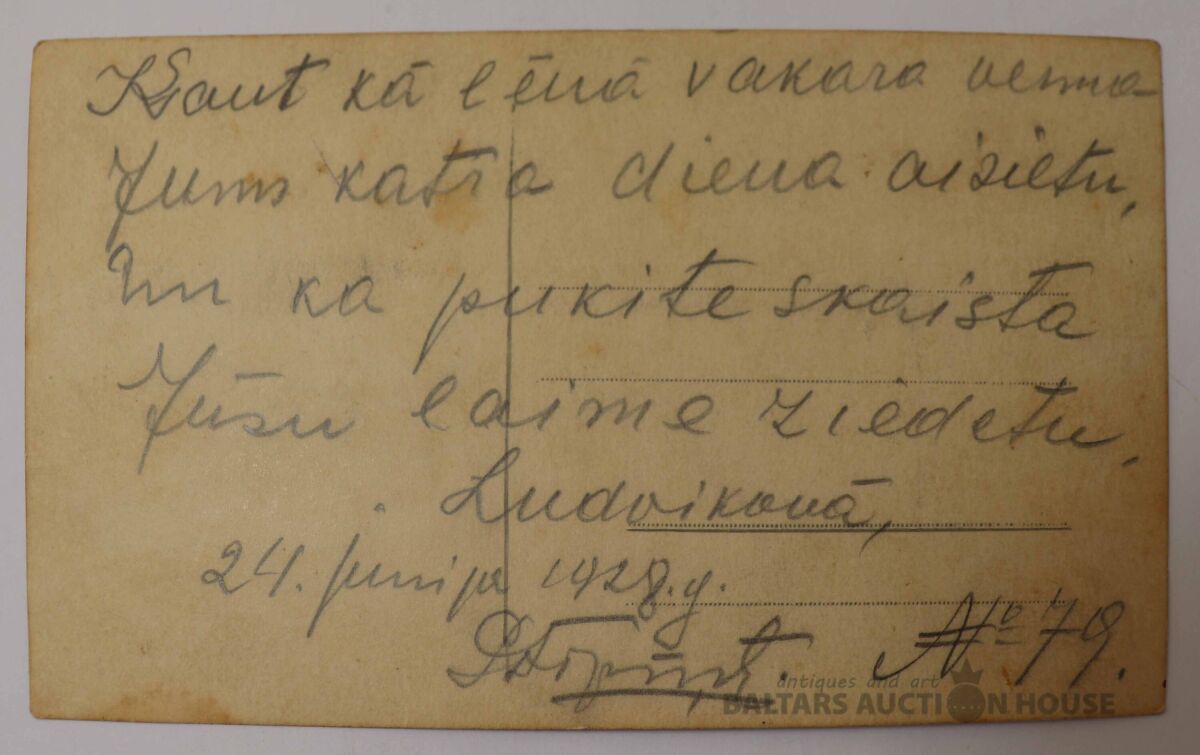 Kļaut kā lēnā vakara vēsma
Jums katra diena aizietu,
Un ka pukite skaista
Jūsu laime ziedetu,
Ludvikovā,
24. junija 1928.g.
№ 79.
antiques and art
BALTARS AUCTION HOUSE